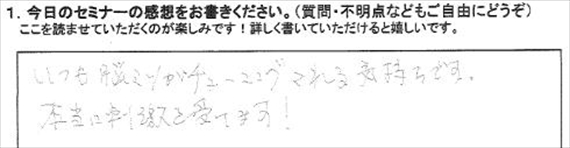 1. 今日のセミナーの感想をお書きください。(質問・不明点などもご自由にどうぞ)
ここを読ませていただくのが楽しみです！詳しく書いていただけると嬉しいです。
いつも脳ミソがチューニングされる気持ちです。
本当に刺激を受てます！